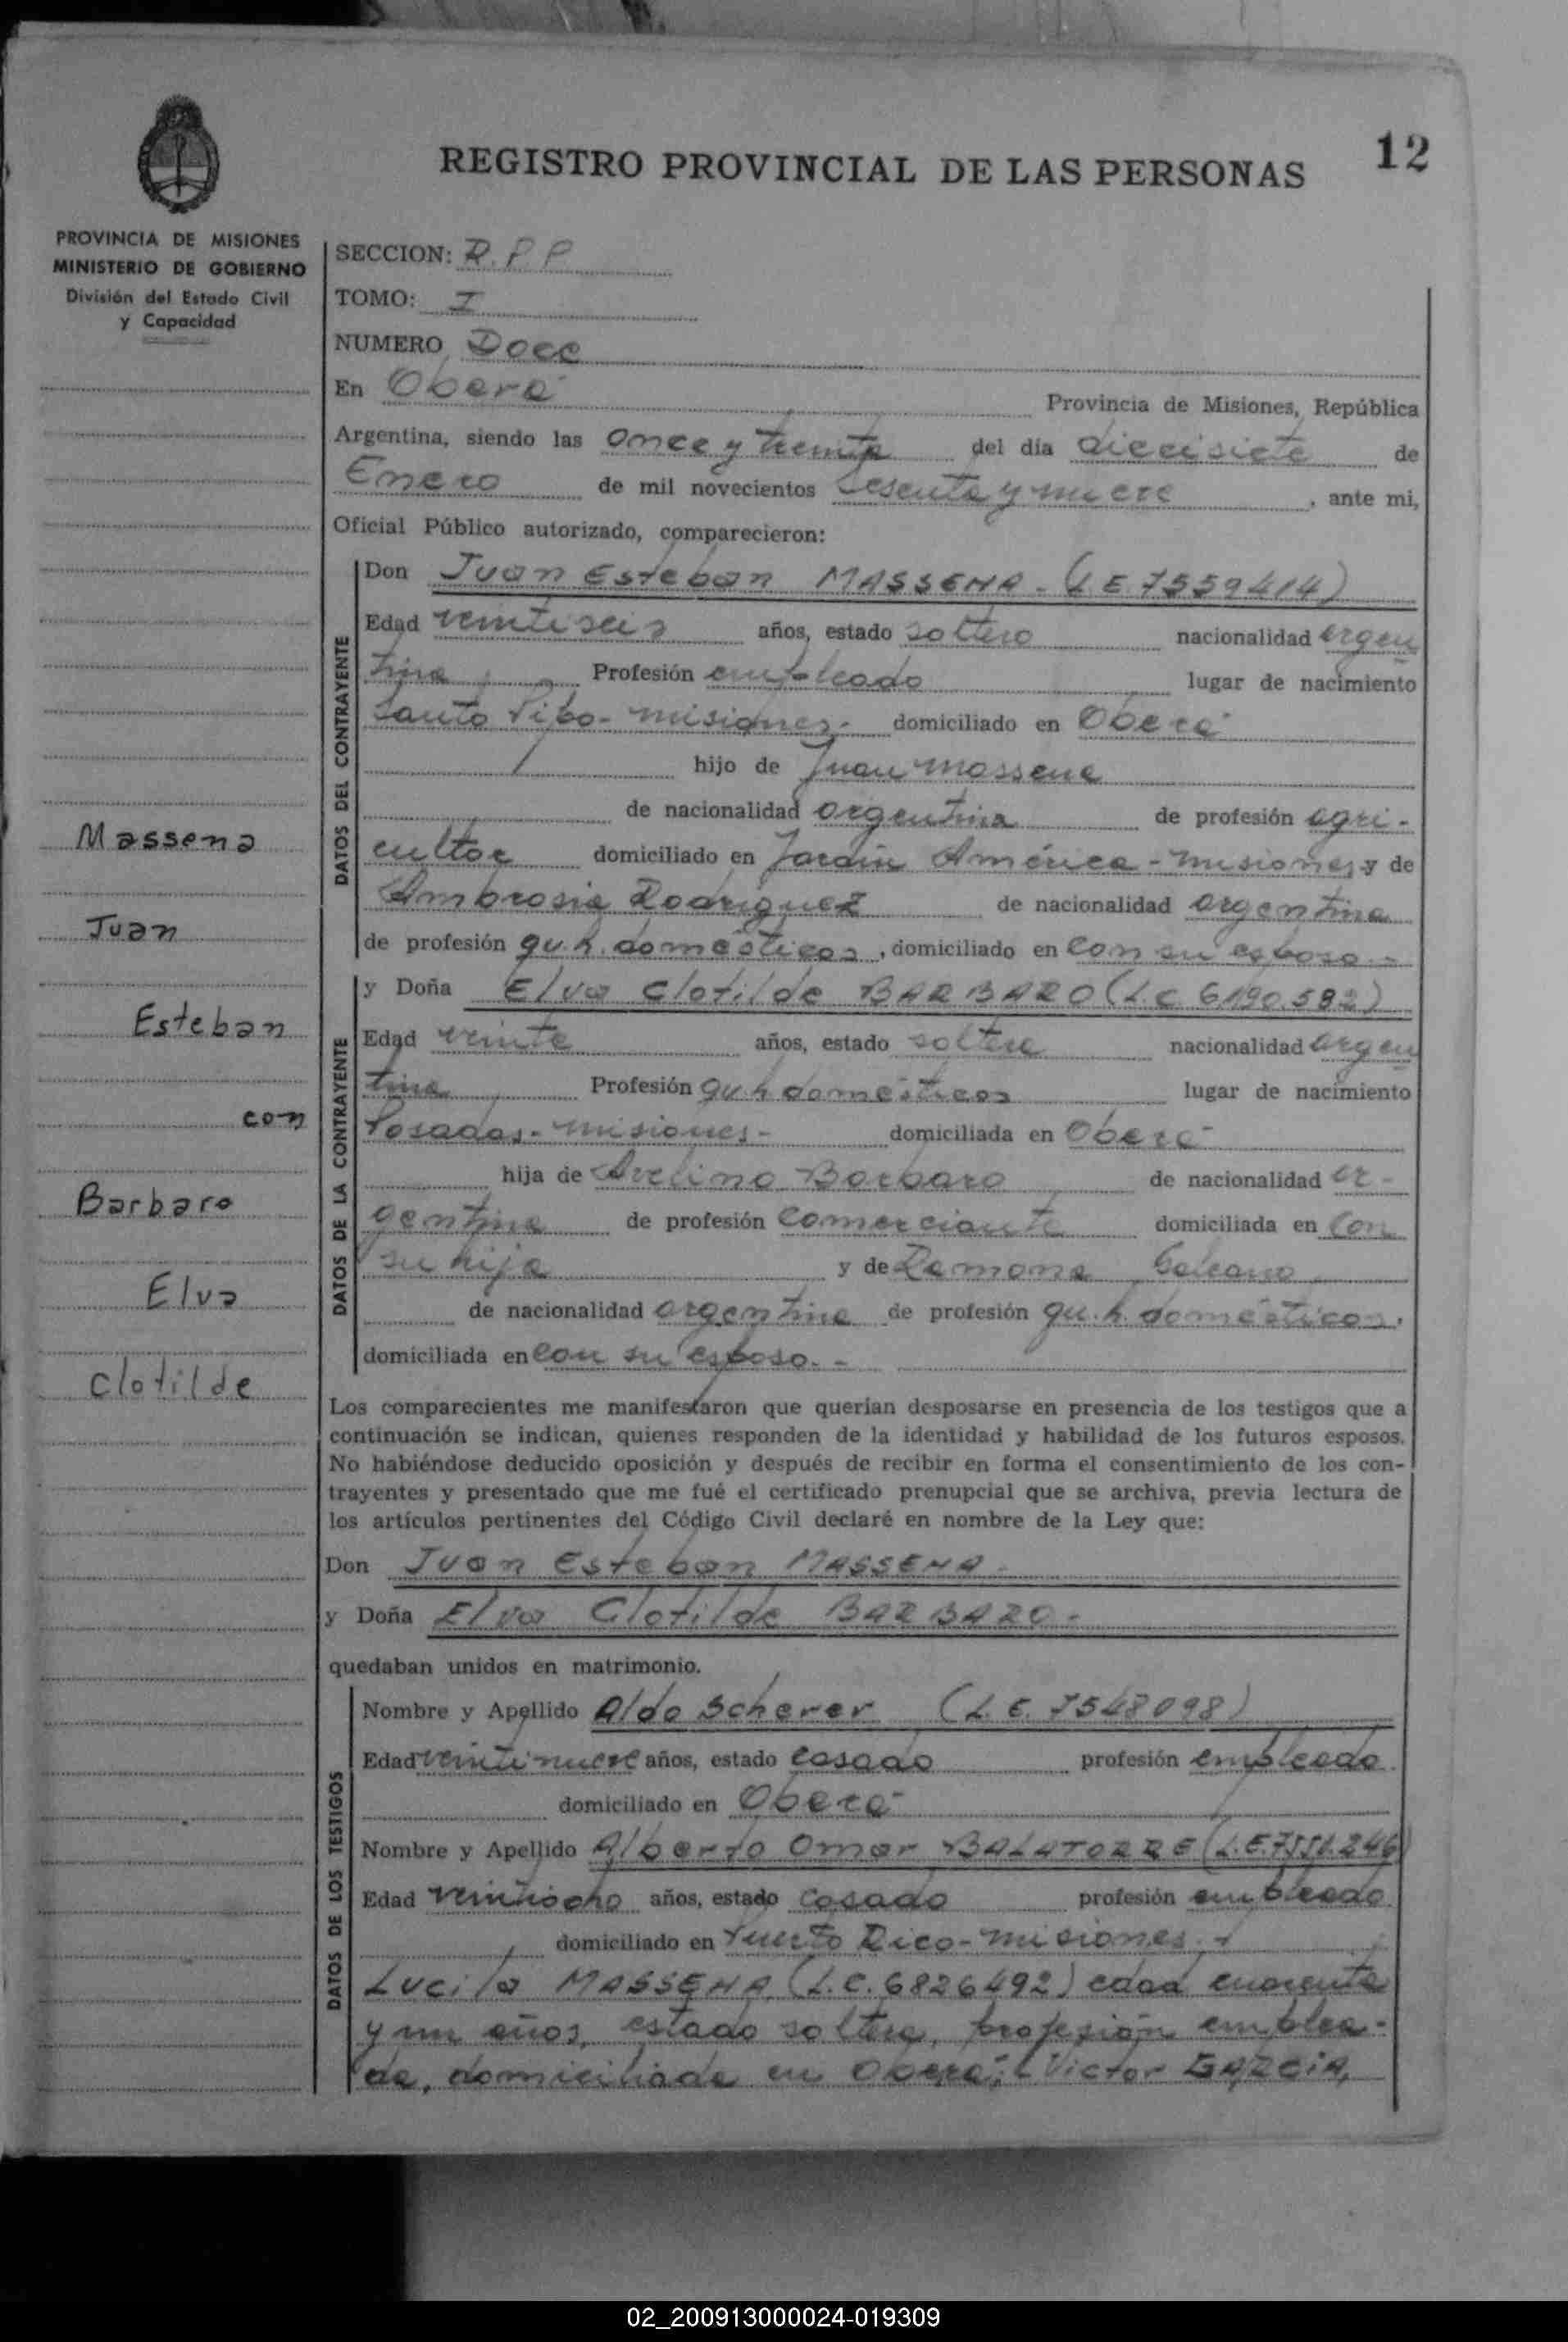 12
REGISTRO PROVINCIAL DE LAS PERSONAS
PROVINCIA DE MISIONES
MINISTERIO DE GOBIERNO
División del Estado Civil
y Capacidad
Massena
Juan
Esteban
con
Barbaro
Elva
Clotilde
SECCION: R.P.P
TOMO: I
NUMERO Doce
En Oberá Provincia de Misiones, República
Argentina, siendo las once y treinta del día diecisiete de
Enero de mil novecientos sesenta y nueve, ante mi,
Oficial Público autorizado, comparecieron:
DATOS DEL CONTRAYENTE
Don Juan Esteban MASSENA - (L.E. 7559414)
Edad veintiseis años, estado soltero nacionalidad argen
tina Profesión empleado lugar de nacimiento
Santo Pipo - Misiones - domiciliado en Oberá
hijo de Juan Massena
de nacionalidad argentina de profesión agri-
cultor domiciliado en Jardín América - Misiones y de
Ambrosia Rodriguez de nacionalidad argentina
de profesión qu.h. domésticos, domiciliado en con su esposo.-
DATOS DE LA CONTRAYENTE
y Doña Elva Clotilde BARBARO (L.C. 6.190.582)
Edad veinte años, estado soltera nacionalidad argen
tina Profesión qu.h domésticos lugar de nacimiento
Posadas - Misiones - domiciliada en Oberá-
hija de Avelino Barbaro de nacionalidad ar-
gentina de profesión comerciante domiciliada en con
su hija y de Ramona Galeano
de nacionalidad argentina de profesión qu.h. domésticos,
domiciliada en con su esposo. -
Los comparecientes me manifestaron que querían desposarse en presencia de los testigos que a
continuación se indican, quienes responden de la identidad y habilidad de los futuros esposos.
No habiéndose deducido oposición y después de recibir en forma el consentimiento de los con-
trayentes y presentado que me fué el certificado prenupcial que se archiva, previa lectura de
los artículos pertinentes del Código Civil declaré en nombre de la Ley que:
Don Juan Esteban MASSENA -
y Doña Elva Clotilde BARBARO -
quedaban unidos en matrimonio.
DATOS DE LOS TESTIGOS
Nombre y Apellido Aldo Scherer (L.E. 7548098)
Edad veintinueve años, estado casado profesión empleado
domiciliado en Oberá
Nombre y Apellido Alberto Omar BALATORRE (L.E. 7.551.246
Edad veintiocho años, estado casado profesión empleado
domiciliado en Puerto Rico - Misiones.
Lucila MASSENA, (L.C. 6826492) edad cuarenta
y un años, estado soltera, profesión emplea-
da, domiciliada en Oberá; Victor GARCIA,
02_200913000024-019309